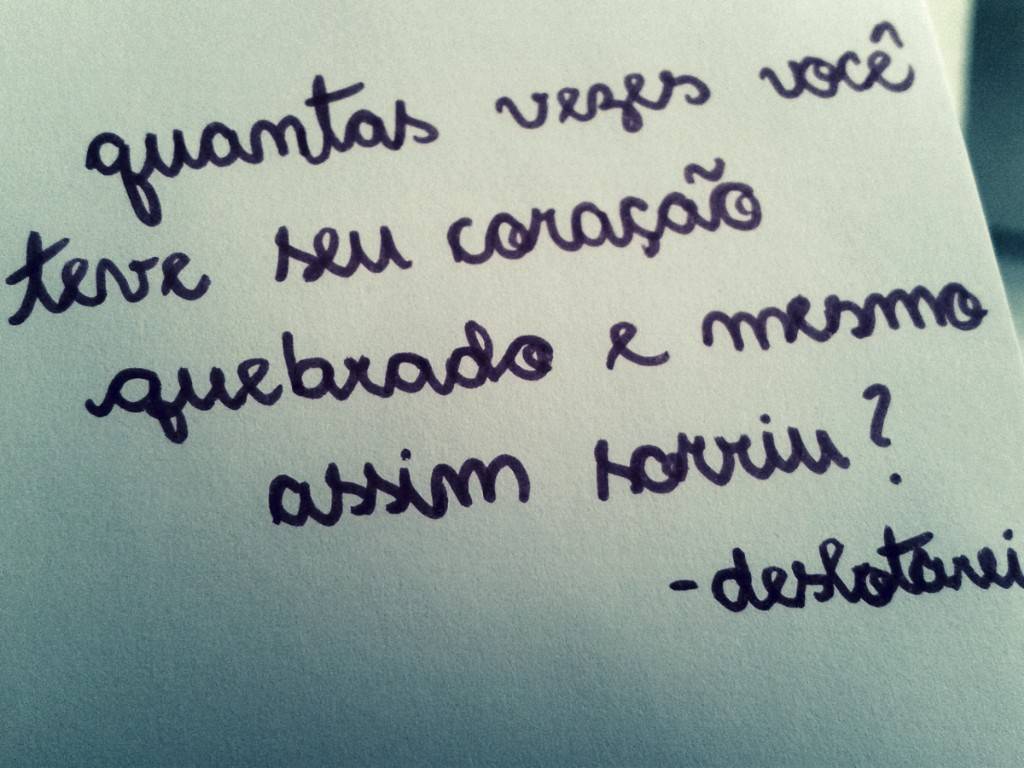 quantas vezes você
teve seu coração
quebrado e mesmo
assim sorriu?
-deslotarei